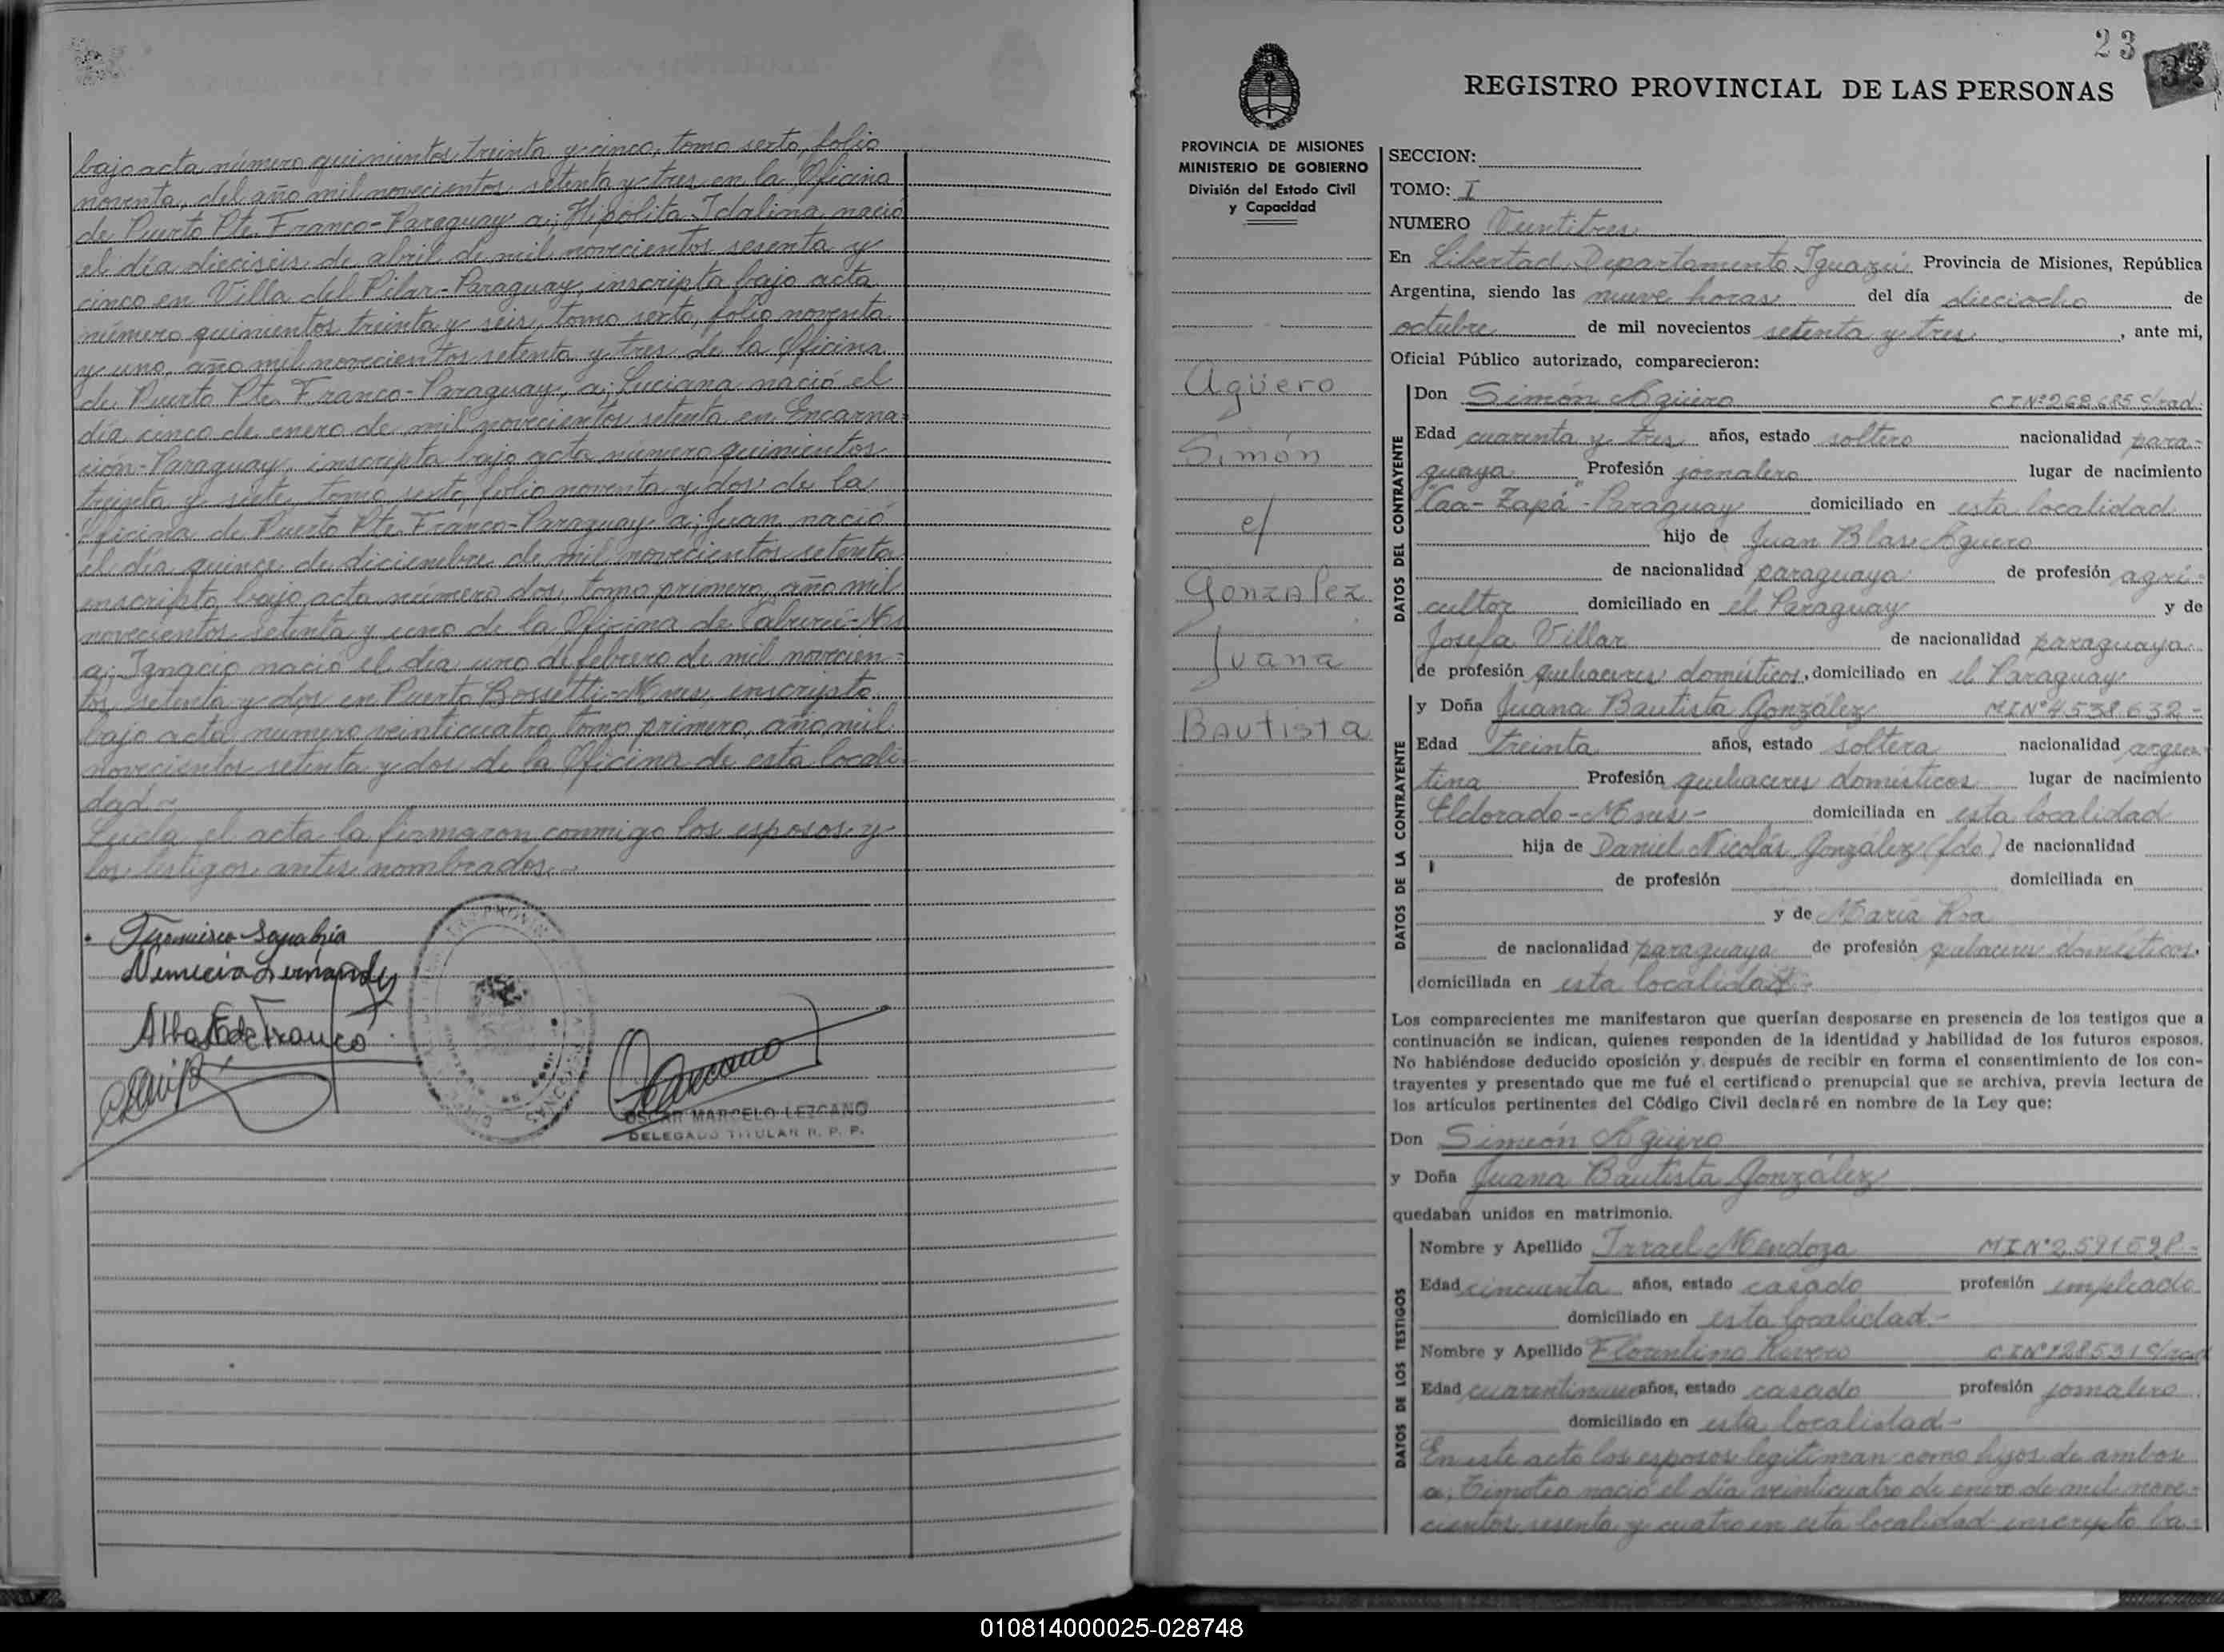 bajo acta número quinientos treinta y cinco, tomo sexto, folio
noventa, del año mil novecientos setenta y tres en la Oficina
de Puerto Pte. Franco-Paraguay a; Hipólita Idalina nació
el día dieciseis de abril de mil novecientos sesenta y
cinco en Villa del Pilar-Paraguay, inscripta bajo acta
número quinientos treinta y seis, tomo sexto, folio noventa
y uno, año mil novecientos setenta y tres de la Oficina
de Puerto Pte. Franco-Paraguay, a; Luciana nació el
día cinco de enero de mil novecientos setenta en Encarna=
ción-Paraguay, inscripta bajo acta número quinientos
treinta y siete, tomo sexto, folio noventa y dos de la
Oficina de Puerto Pte. Franco-Paraguay a; Juan nació
el día quince de diciembre de mil novecientos setenta
inscripto bajo acta número dos, tomo primero, año mil
novecientos setenta y uno de la Oficina de Caburei-Ms
a; Ignacio nació el día uno de febrero de mil novecien=
tos setenta y dos en Puerto Bossetti-Mnes, inscripto
bajo acta número veinticuatro, tomo primero, año mil
novecientos setenta y dos de la Oficina de esta locali-
dad.-
Leida el acta la firmaron conmigo los esposos y
los testigos antes nombrados.-
Francisco Sanabria
Nemecia Fernandez
Alba de Franco
OSCAR MARCELO LEZCANO
DELEGADO TITULAR R. P. P.
23
32
REGISTRO PROVINCIAL DE LAS PERSONAS
PROVINCIA DE MISIONES
MINISTERIO DE GOBIERNO
División del Estado Civil
y Capacidad
Agüero
Simón
c/
Gonzalez
Juana
Bautista
SECCION:
TOMO: I
NUMERO Veintitres
En Libertad, Departamento Iguazú Provincia de Misiones, República
Argentina, siendo las nueve horas del día dieciocho de
octubre de mil novecientos setenta y tres, ante mi,
Oficial Público autorizado, comparecieron:
DATOS DEL CONTRAYENTE
Don Simón Agüero C.I.Nº268.685 S/rad.
Edad cuarenta y tres años, estado soltero nacionalidad para-
guaya Profesión jornalero lugar de nacimiento
"Caa-Zapá"-Paraguay domiciliado en esta localidad
hijo de Juan Blas Agüero
de nacionalidad paraguaya de profesión agri-
cultor domiciliado en el Paraguay y de
Josefa Villar de nacionalidad paraguaya
de profesión quehaceres domésticos, domiciliado en el Paraguay
DATOS DE LA CONTRAYENTE
y Doña Juana Bautista González M.I.Nº4.538.632-
Edad treinta años, estado soltera nacionalidad argen-
tina Profesión quehaceres domésticos lugar de nacimiento
Eldorado-Mnes- domiciliada en esta localidad
hija de Daniel Nicolás González (fdo.) de nacionalidad
de profesión domiciliada en
y de María Roa
de nacionalidad paraguaya de profesión quehaceres domésticos,
domiciliada en esta localidad.-
Los comparecientes me manifestaron que querían desposarse en presencia de los testigos que a
continuación se indican, quienes responden de la identidad y habilidad de los futuros esposos.
No habiéndose deducido oposición y después de recibir en forma el consentimiento de los con-
trayentes y presentado que me fué el certificado prenupcial que se archiva, previa lectura de
los artículos pertinentes del Código Civil declaré en nombre de la Ley que:
Don Simeón Agüero
y Doña Juana Bautista González
quedaban unidos en matrimonio.
DATOS DE LOS TESTIGOS
Nombre y Apellido Israel Mendoza M.I.Nº2.591.698-
Edad cincuenta años, estado casado profesión empleado
domiciliado en esta localidad.-
Nombre y Apellido Florentino Rivero C.I.Nº128531 S/rad
Edad cuarentinueve años, estado casado profesión jornalero
domiciliado en esta localidad-
En este acto los esposos legitiman como hijos de ambos
a; Timoteo nació el día veinticuatro de enero de mil nove-
cientos sesenta y cuatro en esta localidad inscripto ba-
010814000025-028748